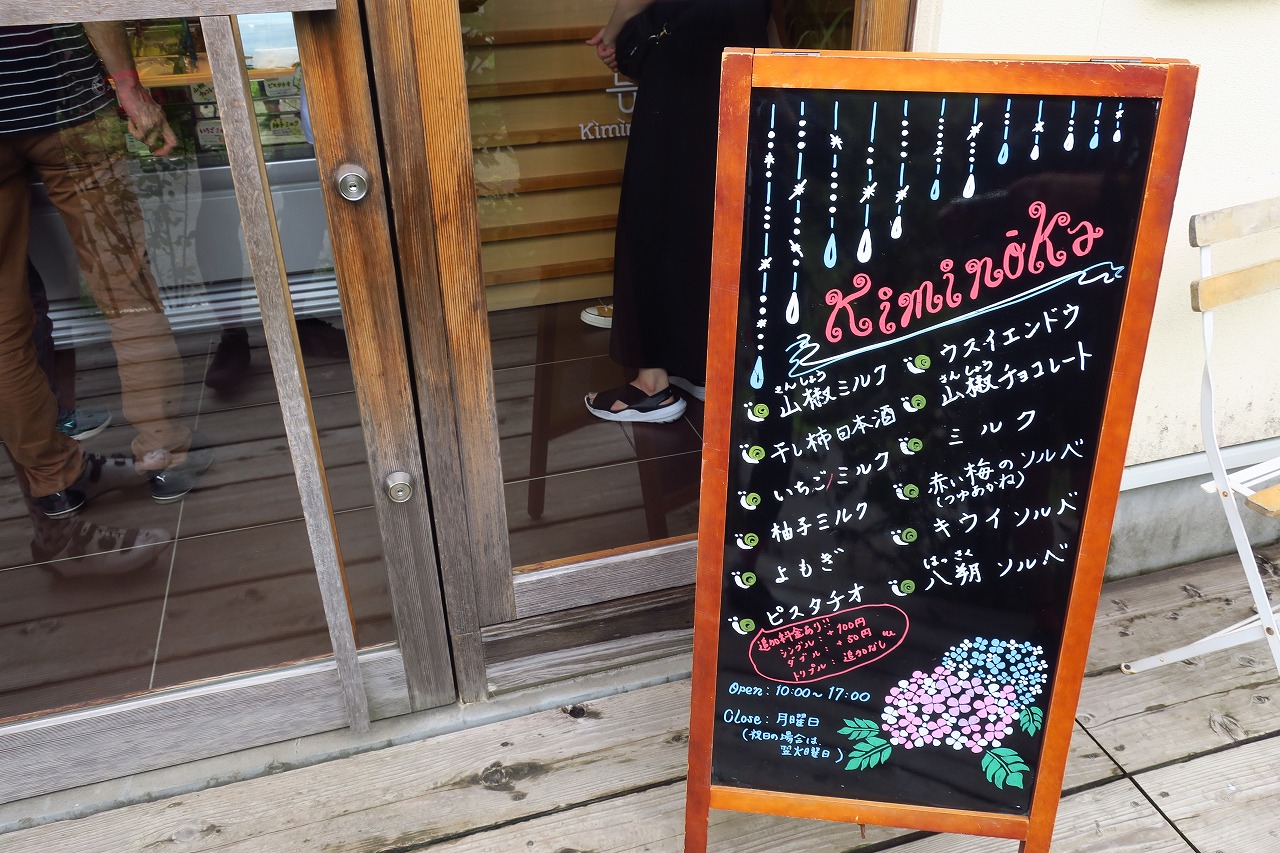 Kimin
Kiminōka
さんしょう
山椒ミルク
干し柿日本酒
いちごミルク
柚子ミルク
よもぎ
ピスタチオ
追加料金あり!!
シングル:+100円
ダブル:+50円
トリプル:追加なし
ウスイエンドウ
さんしょう
山椒チョコレート
ミルク
赤い梅のソルベ
(つゆあかね)
キウイソルベ
はっさく
八朔 ソルベ
Open:10:00~17:00
Close:月曜日
(祝日の場合は、
翌火曜日)